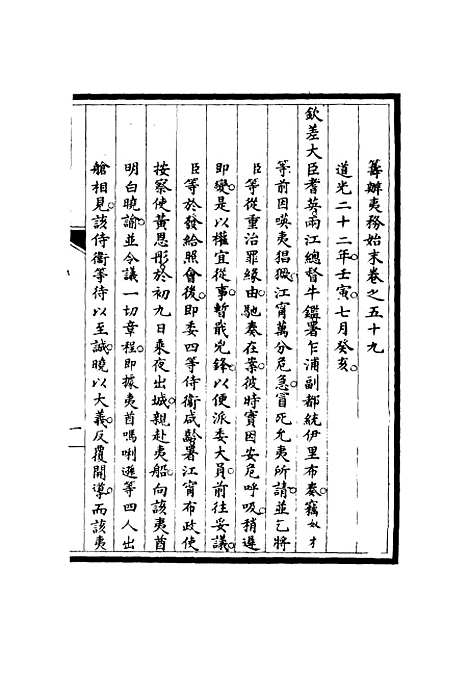 籌辦夷務始末卷之五十九
道光二十二年壬寅。七月癸亥。
欽差大臣耆英兩江總督牛鑑署乍浦副都統伊里布奏。竊奴才
等前因㗸夷猖獗。江甯萬分危急。冒死允夷所請。並乞將
臣等從重治罪緣由。馳奏在案。彼時實因安危呼吸。稍遲
即變。是以權宜從事。暫戢兇鋒。以便派委大員。前往妥議。
臣等於發給照會後。即委四等侍衛咸齡署江甯布政使
按察使黃恩彤於初九日乘夜出城。親赴夷船。向該夷酋
明白曉諭。並令議一切章程。即據夷酋嗎唎遜等四人出
艙相見。該侍衛等待以至誠。曉以大義。反覆開導。而該夷
一